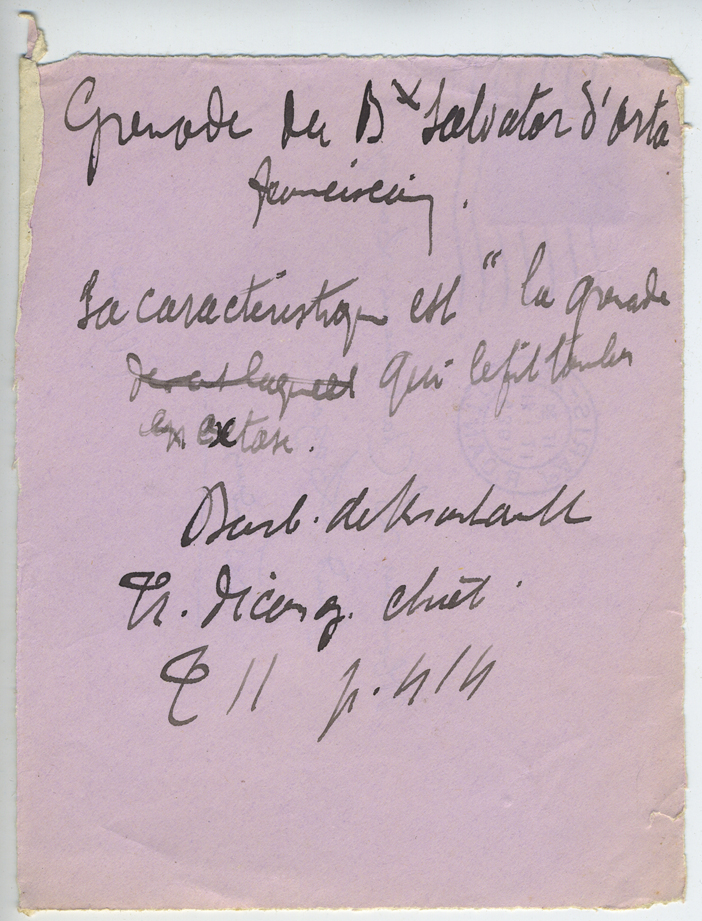 Grenade du Bx Salvator d'Orta
franciscain.
Sa caractéristique est " la grenade
devant laquelle qui le fit tomber
en extase.
Barb. de Montault
Tr. d'iconog. chrét.
T II p. 414